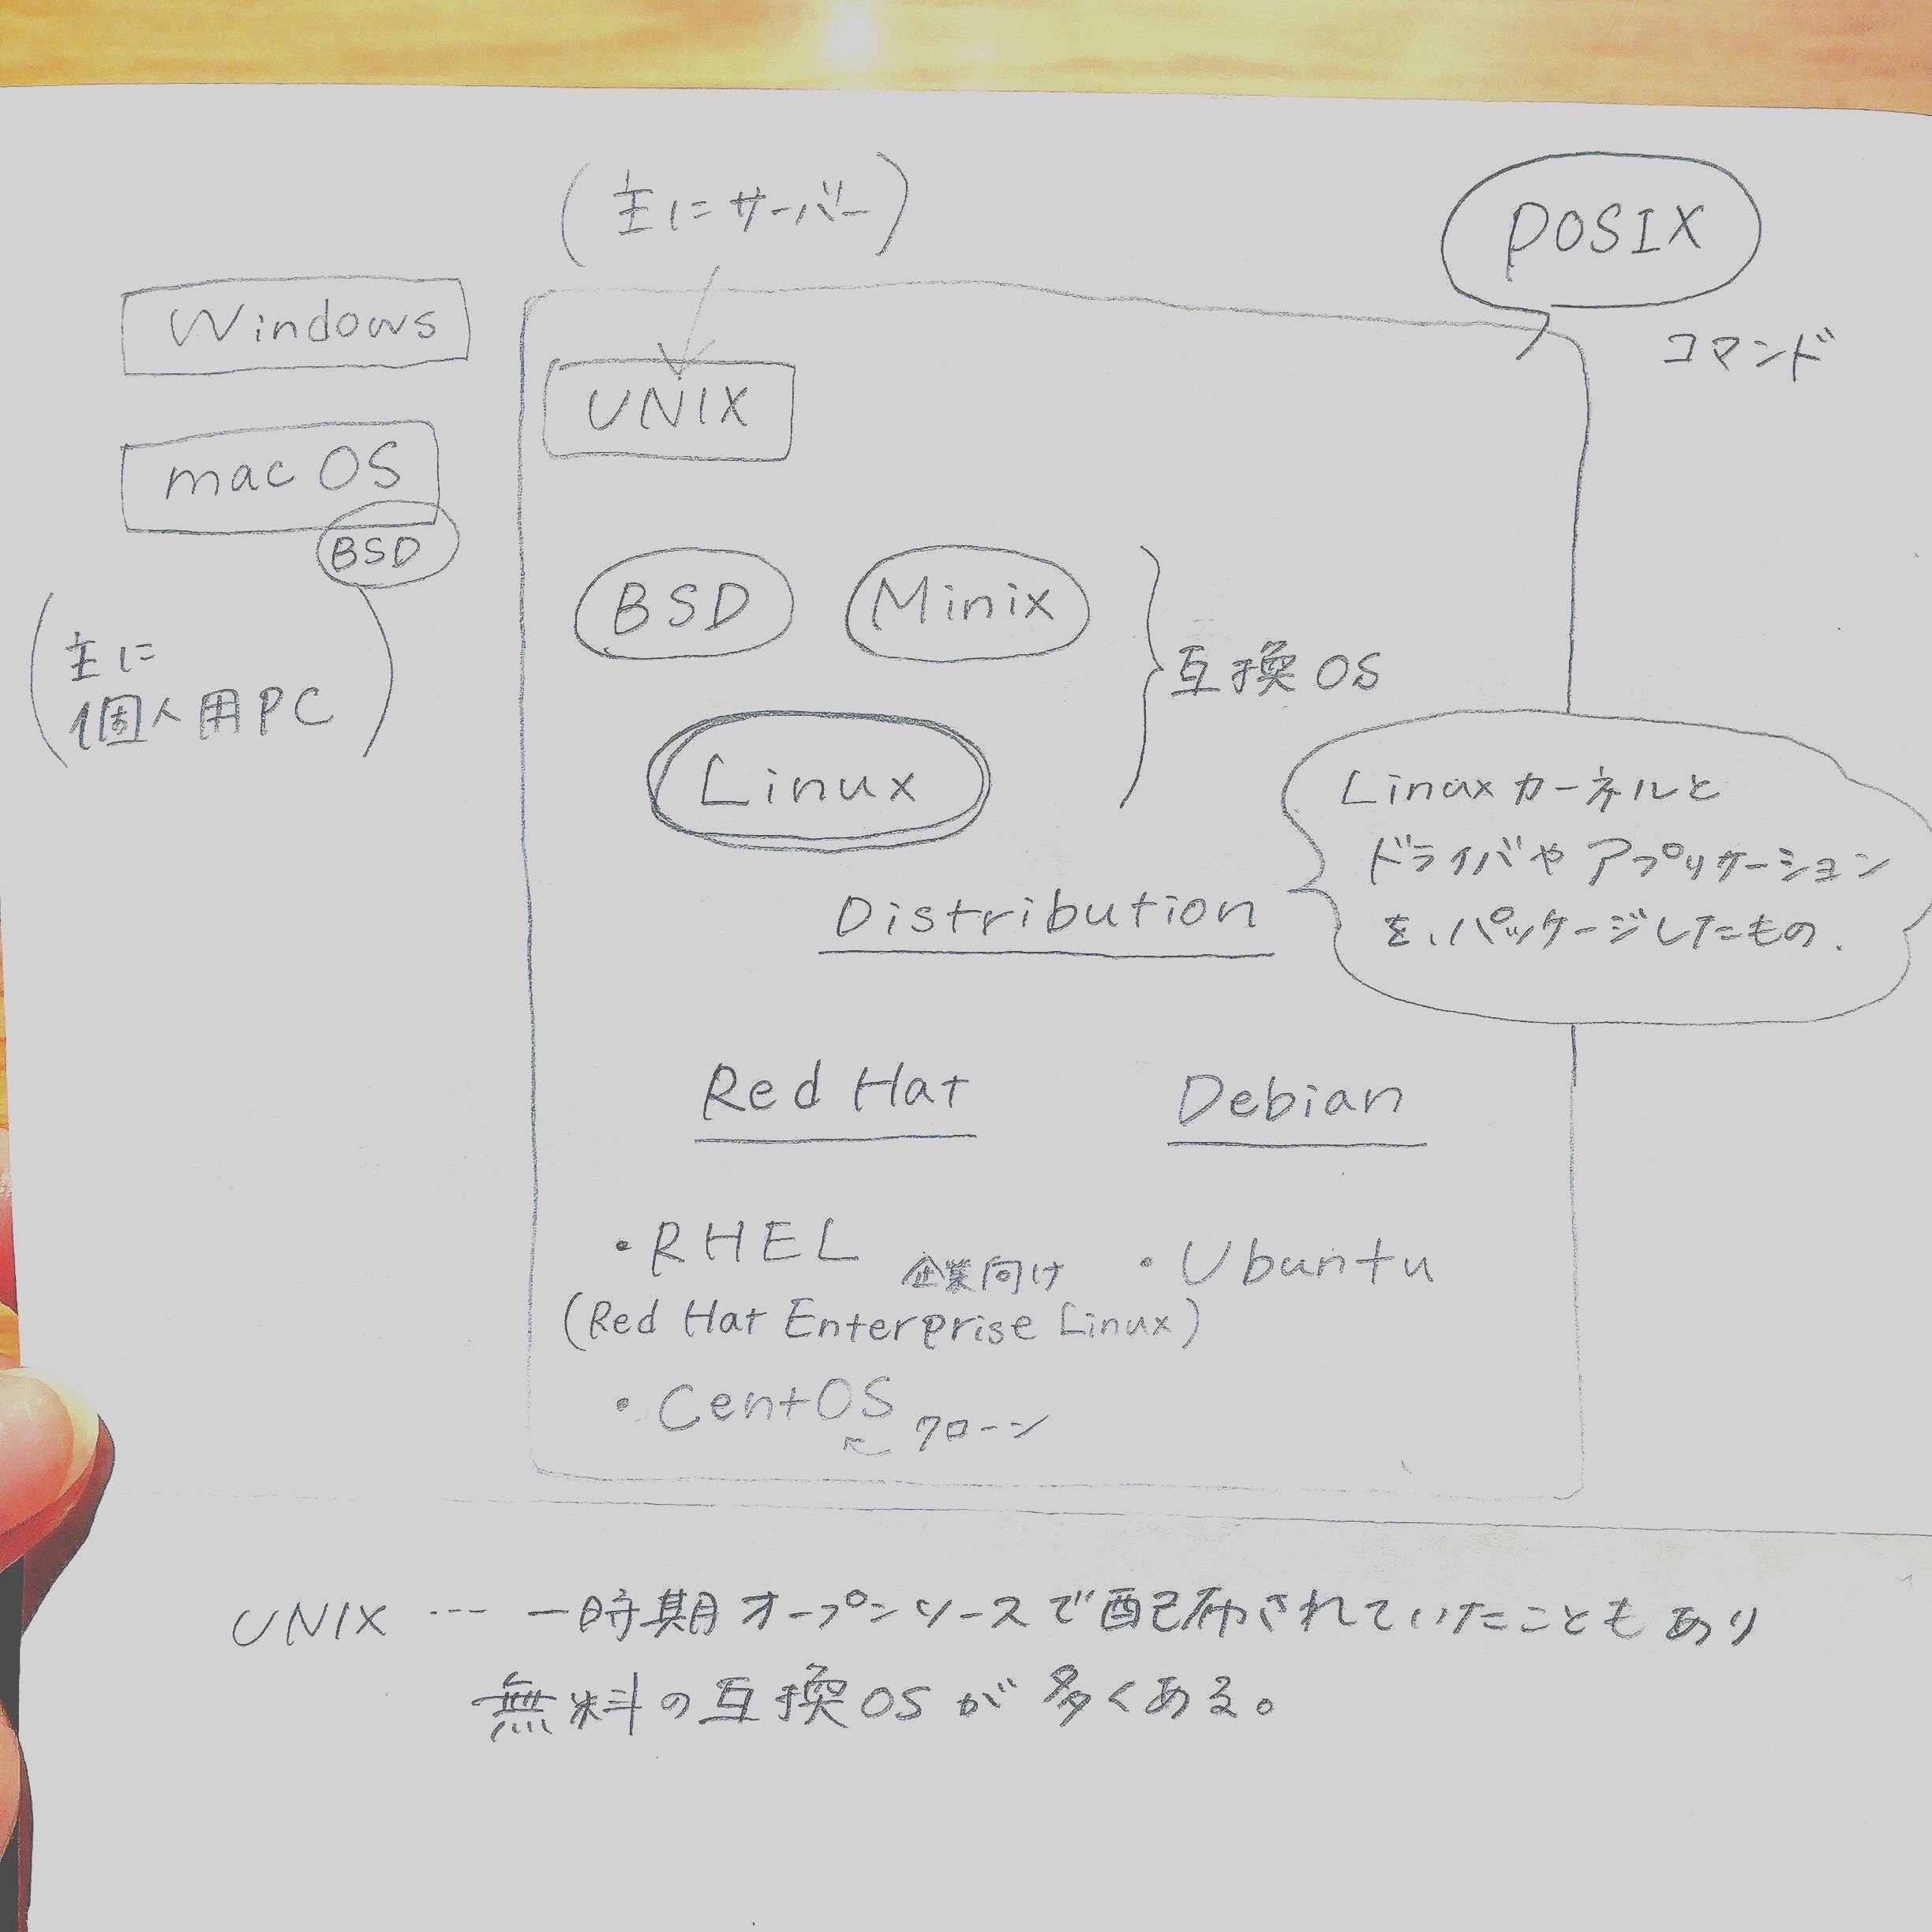 (主にサーバー)
POSIX
コマンド
Windows
UNIX
mac OS
BSD
(主に
個人用PC)
BSD
Minix
互換OS
Linux
Linuxカーネルと
ドライバやアプリケーション
を、パッケージしたもの.
Distribution
Red Hat
Debian
・RHEL 企業向け
(Red Hat Enterprise Linux)
・Ubuntu
・CentOS クローン
UNIX … 一時期オープンソースで配布されていたこともあり
無料の互換OSが多くある。